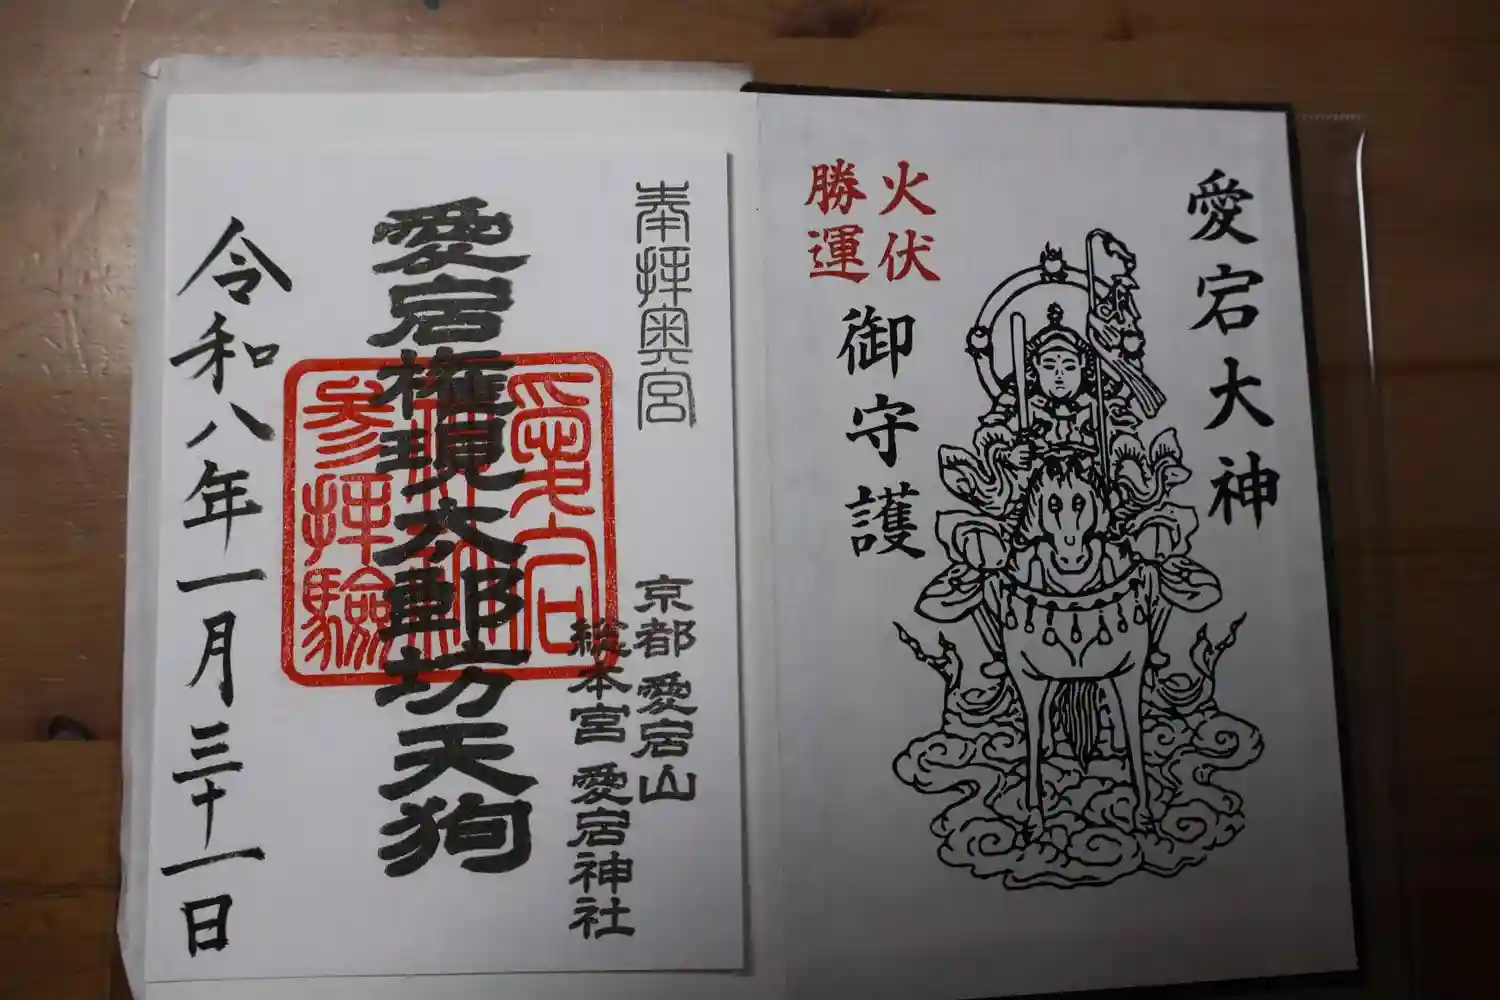 愛宕大神
火伏
勝運
御守護
奉拝奥宮
京都愛宕山
総本宮 愛宕神社
愛宕権現太郎坊天狗
愛宕
参拝驗
令和八年一月三十一日